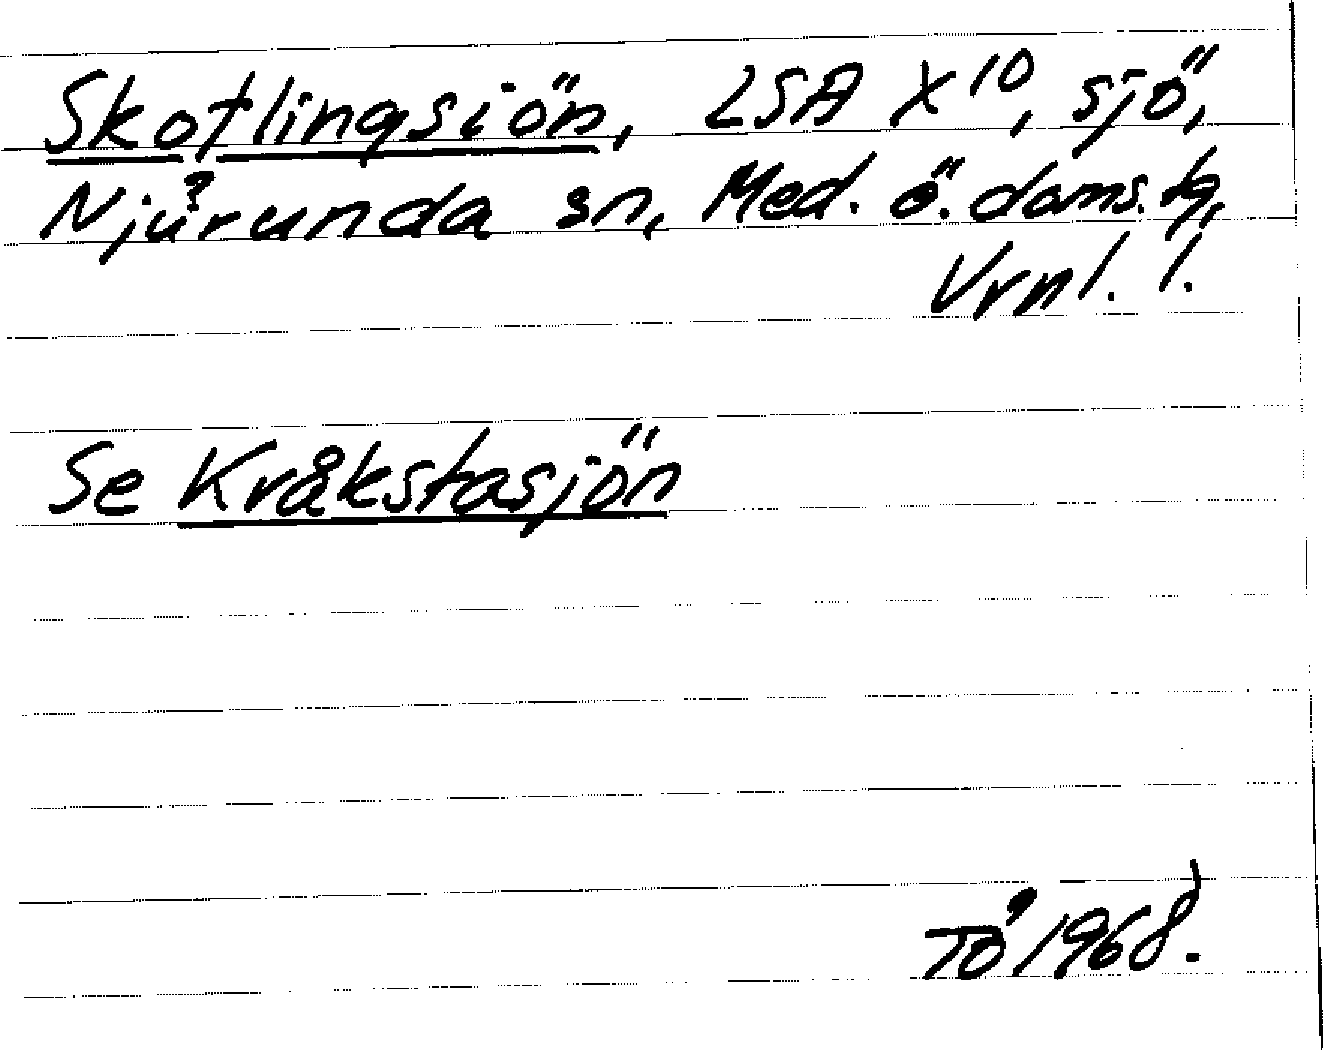 Skotlingsiön, LSA X¹⁰, sjö,
Njurunda sn, Med. ö. doms. tg,
Vrnl. l.
Se Kråkstasjön
TÖ 1968.